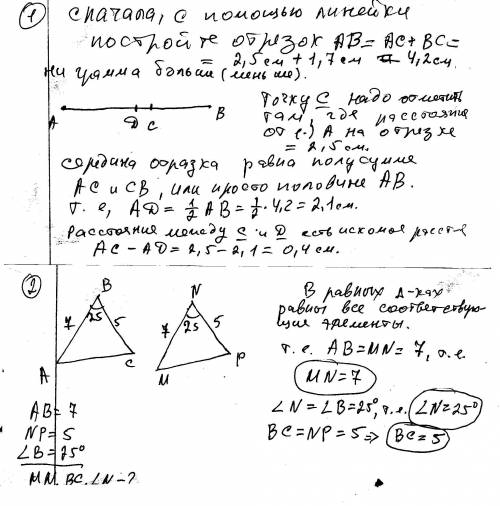 ① Сначала, с помощью линейки
постройте отрезок AB = AC + BC =
= 2,5 см + 1,7 см = 4,2 см.
ни грамма больше (меньше).
A D C B
Точку C надо отметить
там, где расстояние
от (.) A на отрезке
= 2,5 см.
Середина отрезка равна полусумме
AC и CB, или просто половине AB.
Т.е, AD = 1/2 AB = 1/2 · 4,2 = 2,1 см.
Расстояние между C и D есть искомое расст
AC – AD = 2,5 – 2,1 = 0,4 см.
②
B
7 25 5
A C
N
7 25 5
M P
В равных Δ-ках
равны все соответствую-
щие элементы.
т.е. AB = MN = 7, т.е.
MN = 7
∠N = ∠B = 25°, т.е. ∠N = 25°
BC = NP = 5 => BC = 5
AB = 7
NP = 5
∠B = 25°
MN. BC. ∠N – ?